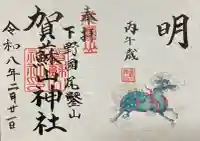 奉拝
下野國尾鑿山
賀蘇山神社
令和八年二月廿一日
明
丙午歳